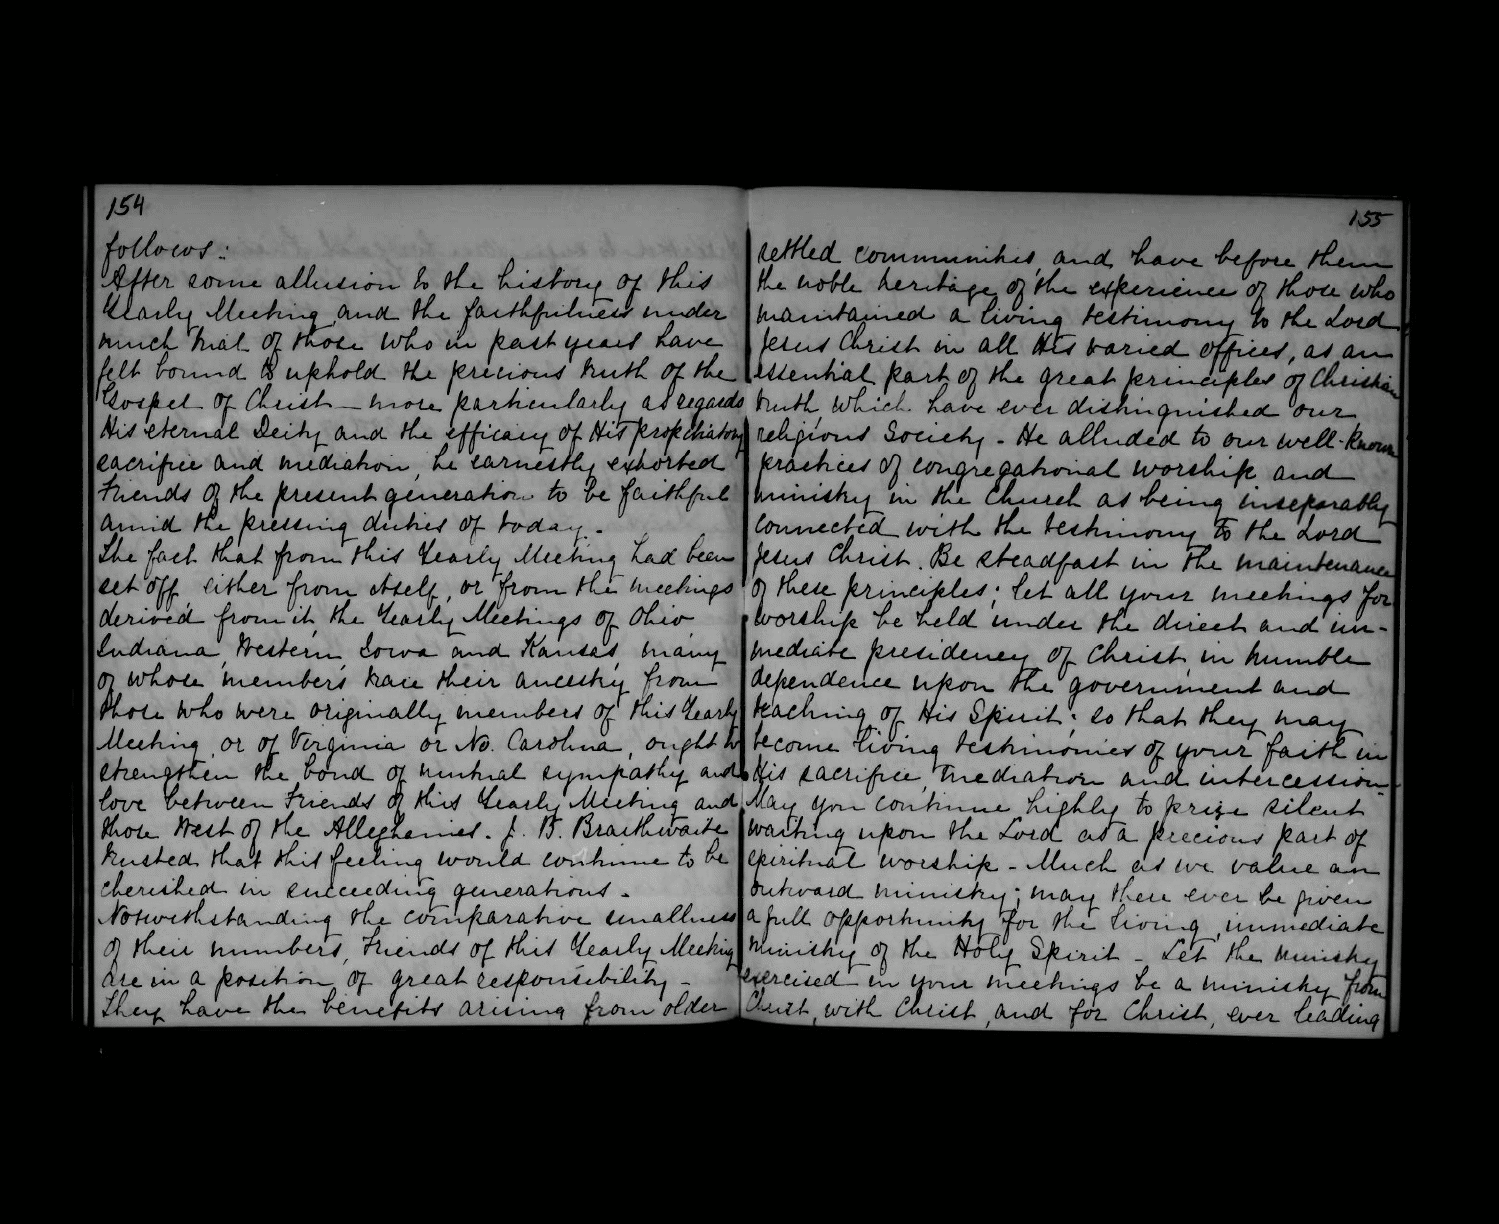 154
follows:
After some allusion to the history of this
Yearly Meeting and the faithfulness under
much trial of those who in past years have
felt bound to uphold the precious truth of the
Gospel of Christ — more particularly as regards
His eternal Deity and the efficacy of His propitiatory
sacrifice and mediation, he earnestly exhorted
Friends of the present generation to be faithful
amid the pressing duties of today.
The fact that from this Yearly Meeting had been
set off either from itself, or from the meetings
derived from it, the Yearly Meetings of Ohio,
Indiana, Western, Iowa and Kansas, many
of whose members trace their ancestry from
those who were originally members of this Yearly
Meeting, or of Virginia or No. Carolina, ought to
strengthen the bond of mutual sympathy and
love between Friends of this Yearly Meeting and
those West of the Alleghenies. J. B. Braithwaite
trusted that this feeling would continue to be
cherished in succeeding generations.
Notwithstanding the comparative smallness
of their numbers, Friends of this Yearly Meeting
are in a position of great responsibility -
They have the benefits arising from older
155
settled communities, and have before them
the noble heritage of the experience of those who
maintained a living testimony to the Lord
Jesus Christ in all His varied offices, as an
essential part of the great principles of Christian
truth which have ever distinguished our
religious Society - He alluded to our well-known
practices of congregational worship and
ministry in the Church as being inseparably
connected with the testimony to the Lord
Jesus Christ. Be steadfast in the maintenance
of these principles; let all your meetings for
worship be held under the direct and im-
mediate presidency of Christ in humble
dependence upon the government and
teaching of His Spirit; so that they may
become living testimonies of your faith in
His sacrifice, mediation and intercession -
May you continue highly to prize silent
waiting upon the Lord as a precious part of
spiritual worship - Much as we value an
outward ministry; may there ever be given
a full opportunity for the living, immediate
ministry of the Holy Spirit - Let the ministry
exercised in your meetings be a ministry from
Christ, with Christ, and for Christ, ever leading